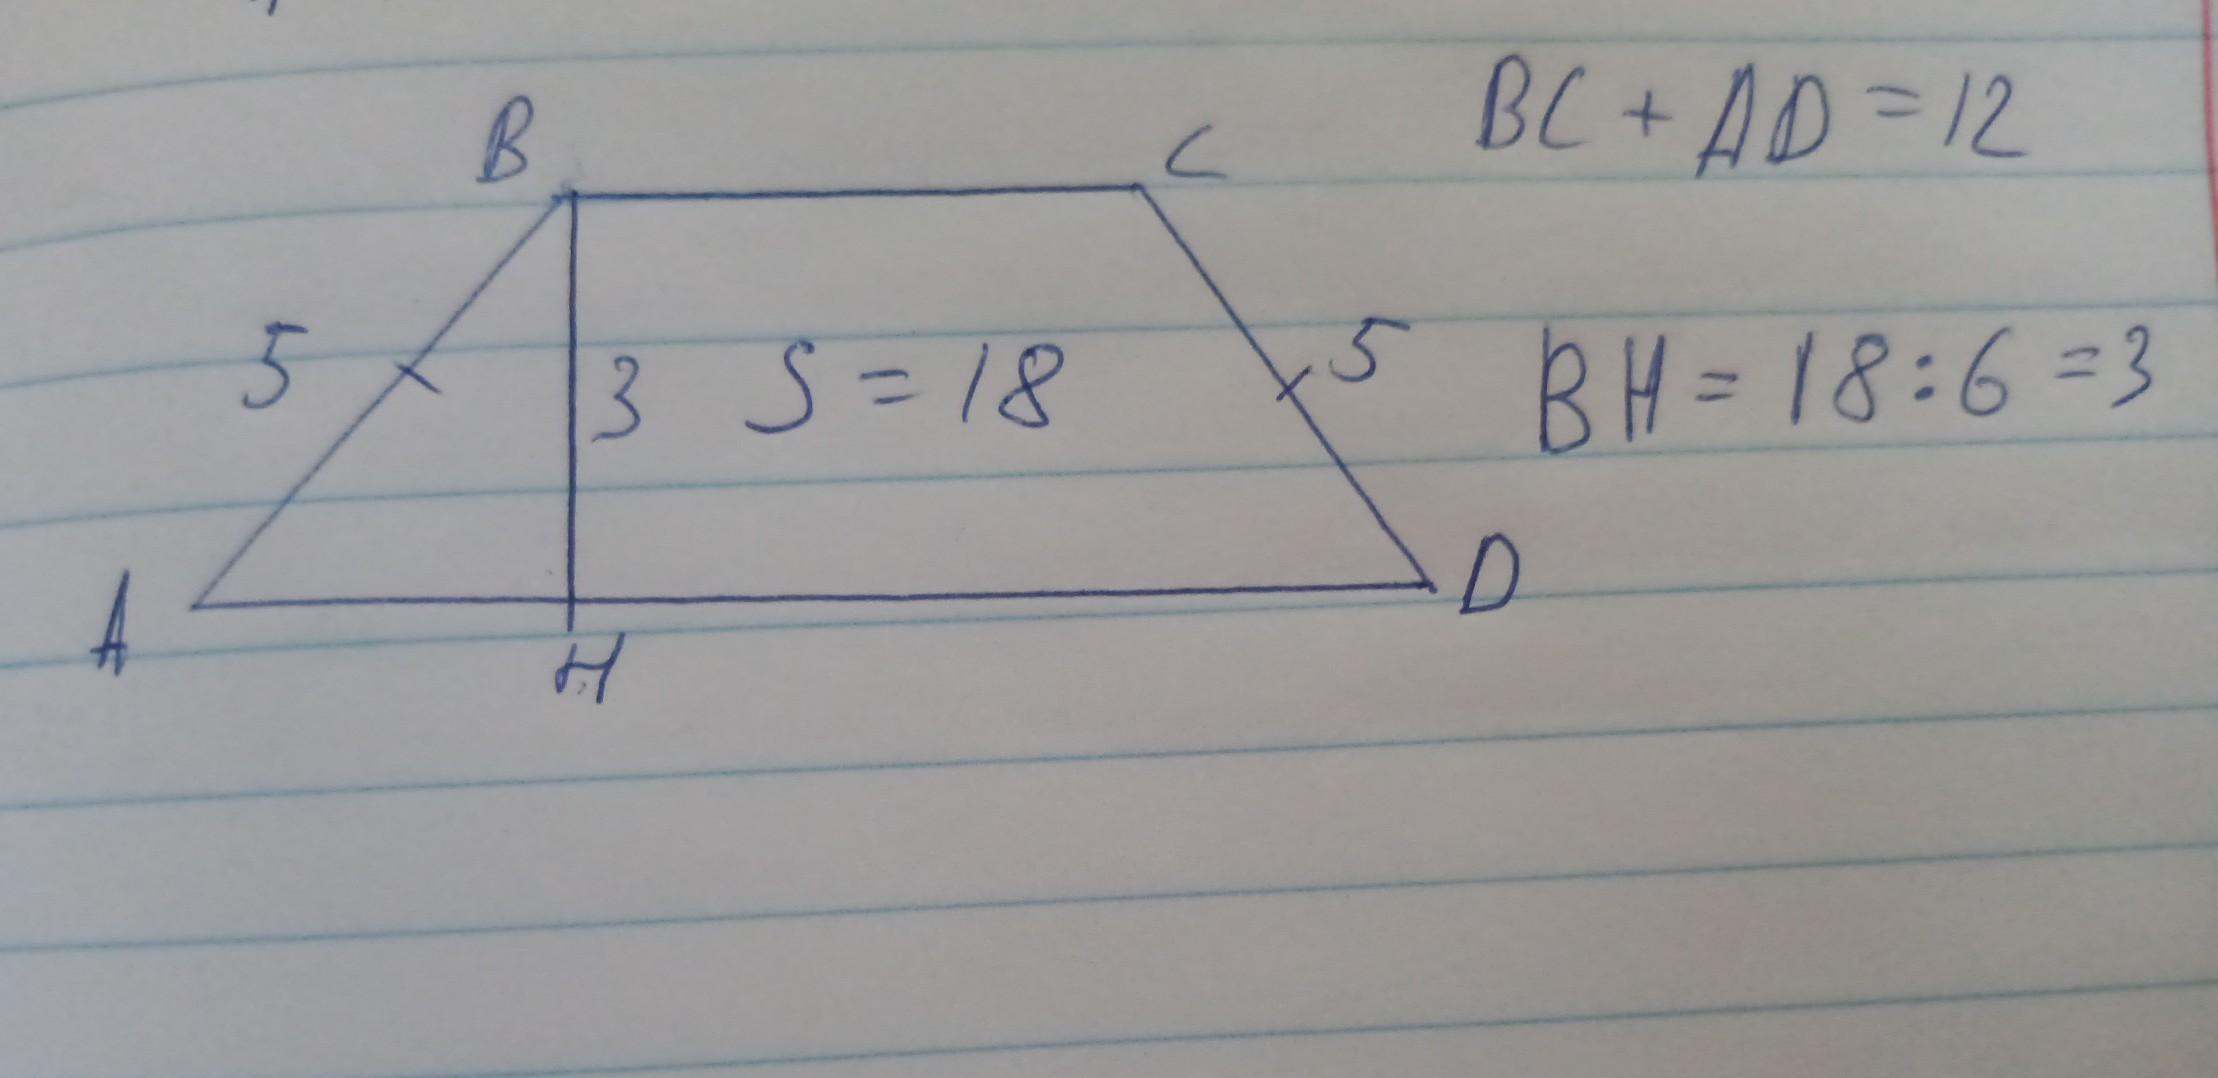 B C BC + AD = 12
5 3 S = 18 5 BH = 18 : 6 = 3
A H D